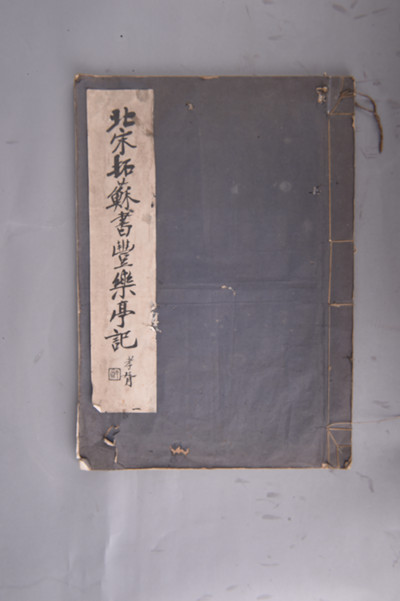 北宋拓蘇書豐樂亭記
孝胥